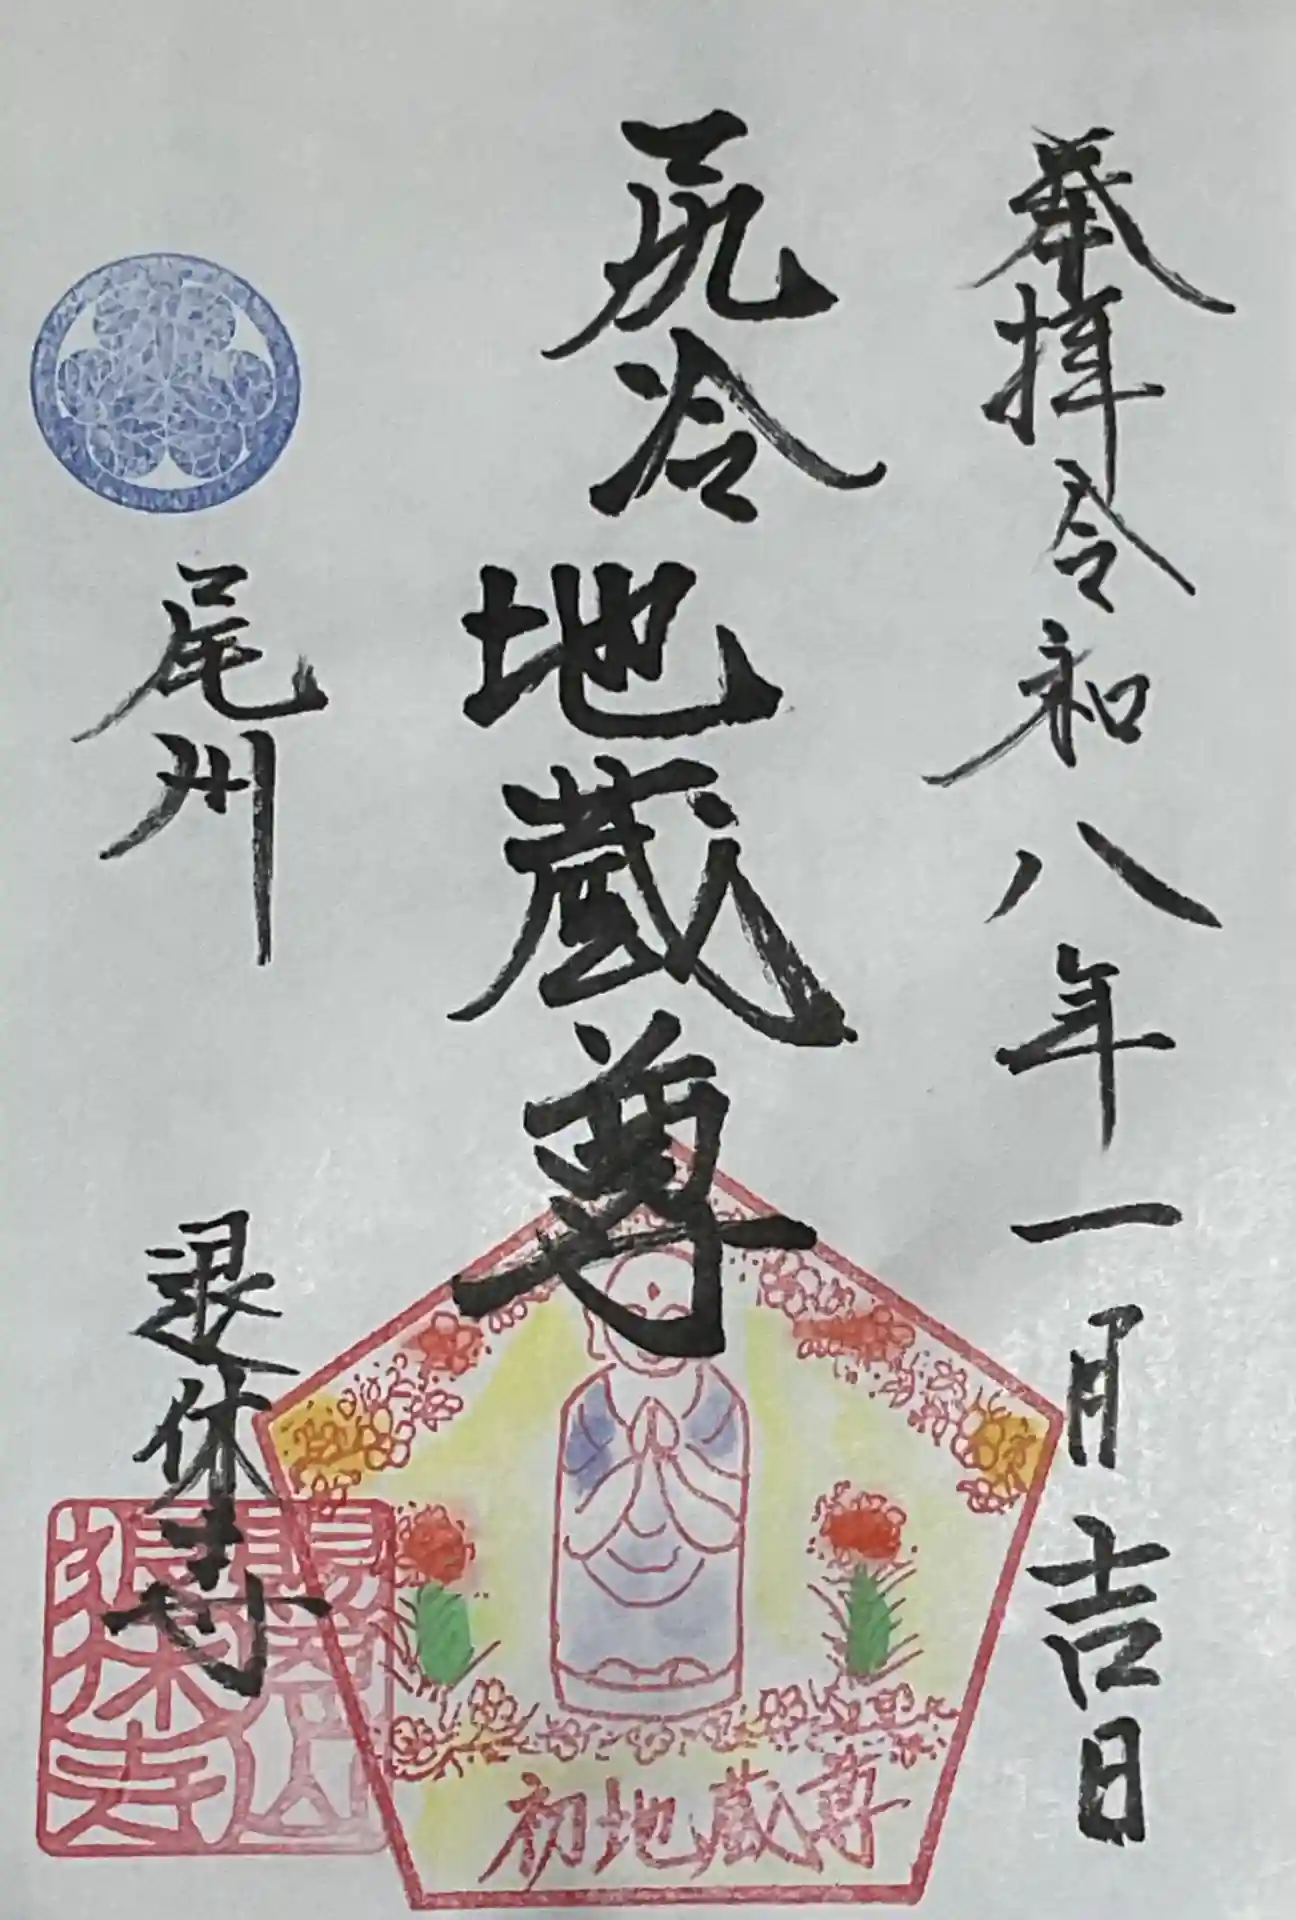 奉拝 令和八年一月吉日
尻冷地蔵尊
尾州 退休寺
初地蔵尊